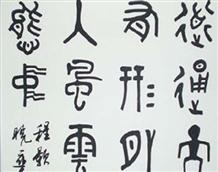 道通天
有形外
入風雲
態中
程颢